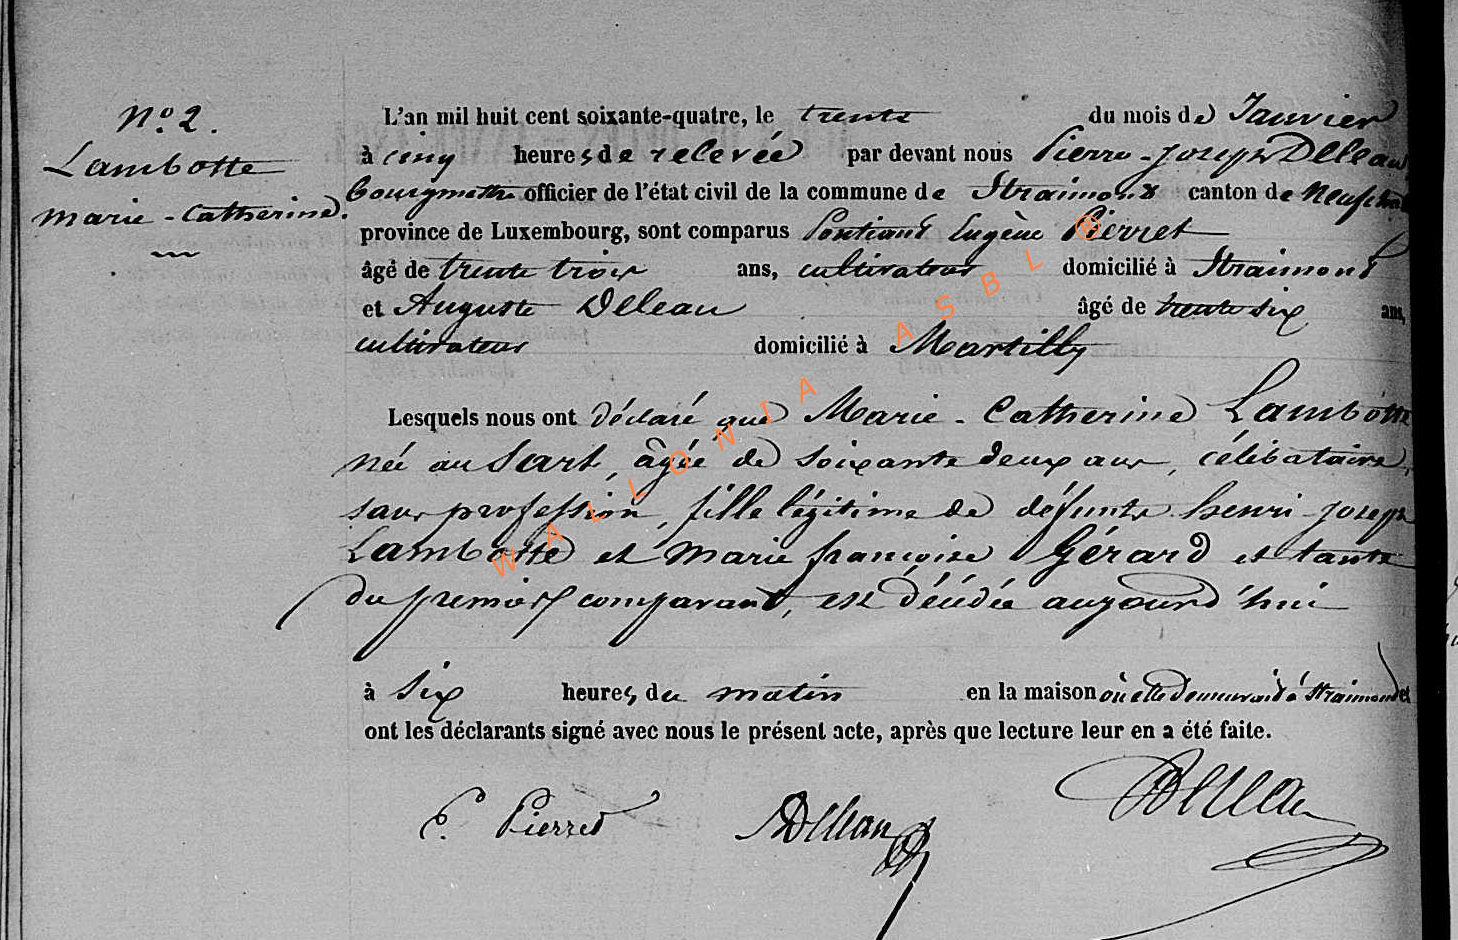 N° 2.
Lambotte
Marie-Catherine.
L'an mil huit cent soixante-quatre, le trente du mois de Janvier
à cinq heures de relevée par devant nous Pierre-Joseph Deleau
bourgmestre officier de l'état civil de la commune de Straimont canton de Neufchâ
province de Luxembourg, sont comparus Pontiant Eugène Pierret
âgé de trente trois ans, cultivateur domicilié à Straimont
et Auguste Deleau âgé de trente six ans,
cultivateur domicilié à Martilly
Lesquels nous ont déclaré que Marie-Catherine Lambotte
née au Sart, âgée de soixante deux ans, célibataire,
sans profession, fille légitime de défunts henri-joseph
Lambotte et Marie françoise Gérard et tante
du premier comparant, est décédée aujourd'hui
à six heures du matin en la maison où elle demeurait à Straimont et
ont les déclarants signé avec nous le présent acte, après que lecture leur en a été faite.
E. Pierret ADeleau Deleau
WALLONIA ASBL ®